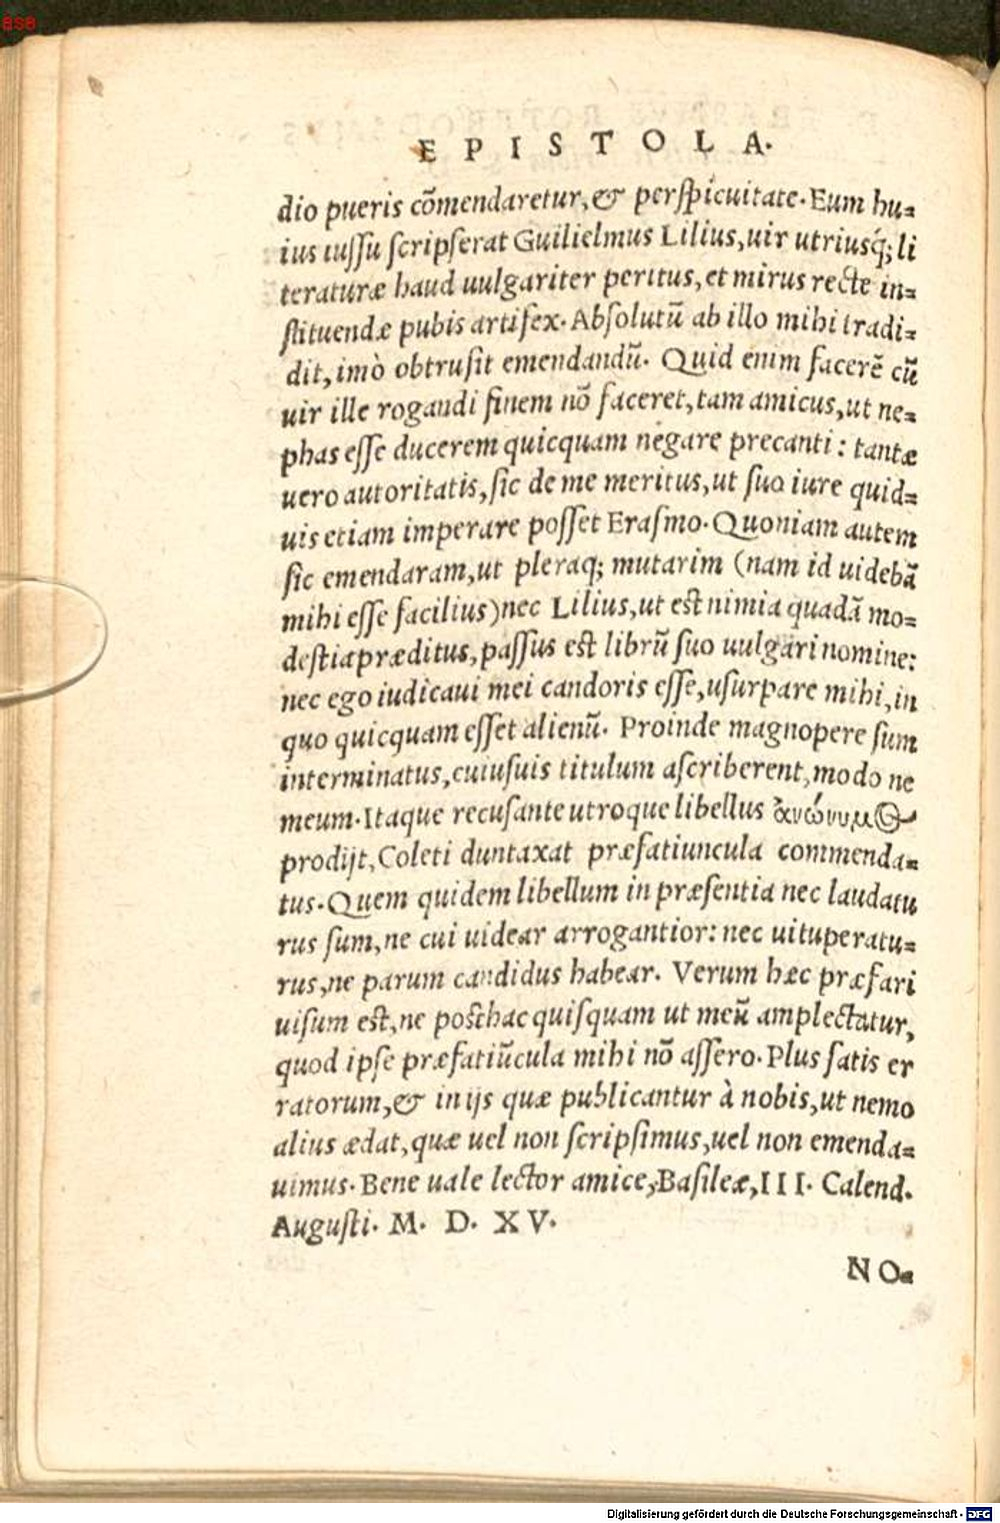 BSB
EPISTOLA.
dio pueris cõmendaretur, & perspicuitate. Eum hu-
ius iussu scripserat Guilielmus Lilius, uir utriusq́; li
teraturæ haud uulgariter peritus, et mirus recte in-
stituendæ pubis artifex. Absolutũ ab illo mihi tradi-
dit, imò obtrusit emendandũ. Quid enim facerẽ cũ
uir ille rogandi finem nõ faceret, tam amicus, ut ne-
phas esse ducerem quicquam negare precanti: tantæ
uero autoritatis, sic de me meritus, ut suo iure quid-
uis etiam imperare posset Erasmo. Quoniam autem
sic emendaram, ut pleraq; mutarim (nam id uidebã
mihi esse facilius) nec Lilius, ut est nimia quadã mo-
destia præditus, passus est librũ suo uulgari nomine:
nec ego iudicaui mei candoris esse, usurpare mihi, in
quo quicquam esset alienũ. Proinde magnopere sum
interminatus, cuiusuis titulum ascriberent, modo ne
meum. Itaque recusante utroque libellus ἀνώνυμος
prodijt, Coleti duntaxat præfatiuncula commenda-
tus. Quem quidem libellum in præsentia nec laudatu
rus sum, ne cui uidear arrogantior: nec uituperatu-
rus, ne parum candidus habear. Verum hæc præfari
uisum est, ne posthac quisquam ut meũ amplectatur,
quod ipse præfatiũcula mihi nõ assero. Plus satis er
ratorum, & in ijs quæ publicantur à nobis, ut nemo
alius ædat, quæ uel non scripsimus, uel non emenda-
uimus. Bene uale lector amice, Basileæ, III. Calend.
Augusti. M. D. XV.
NO-
Digitalisierung gefördert durch die Deutsche Forschungsgemeinschaft - DFG